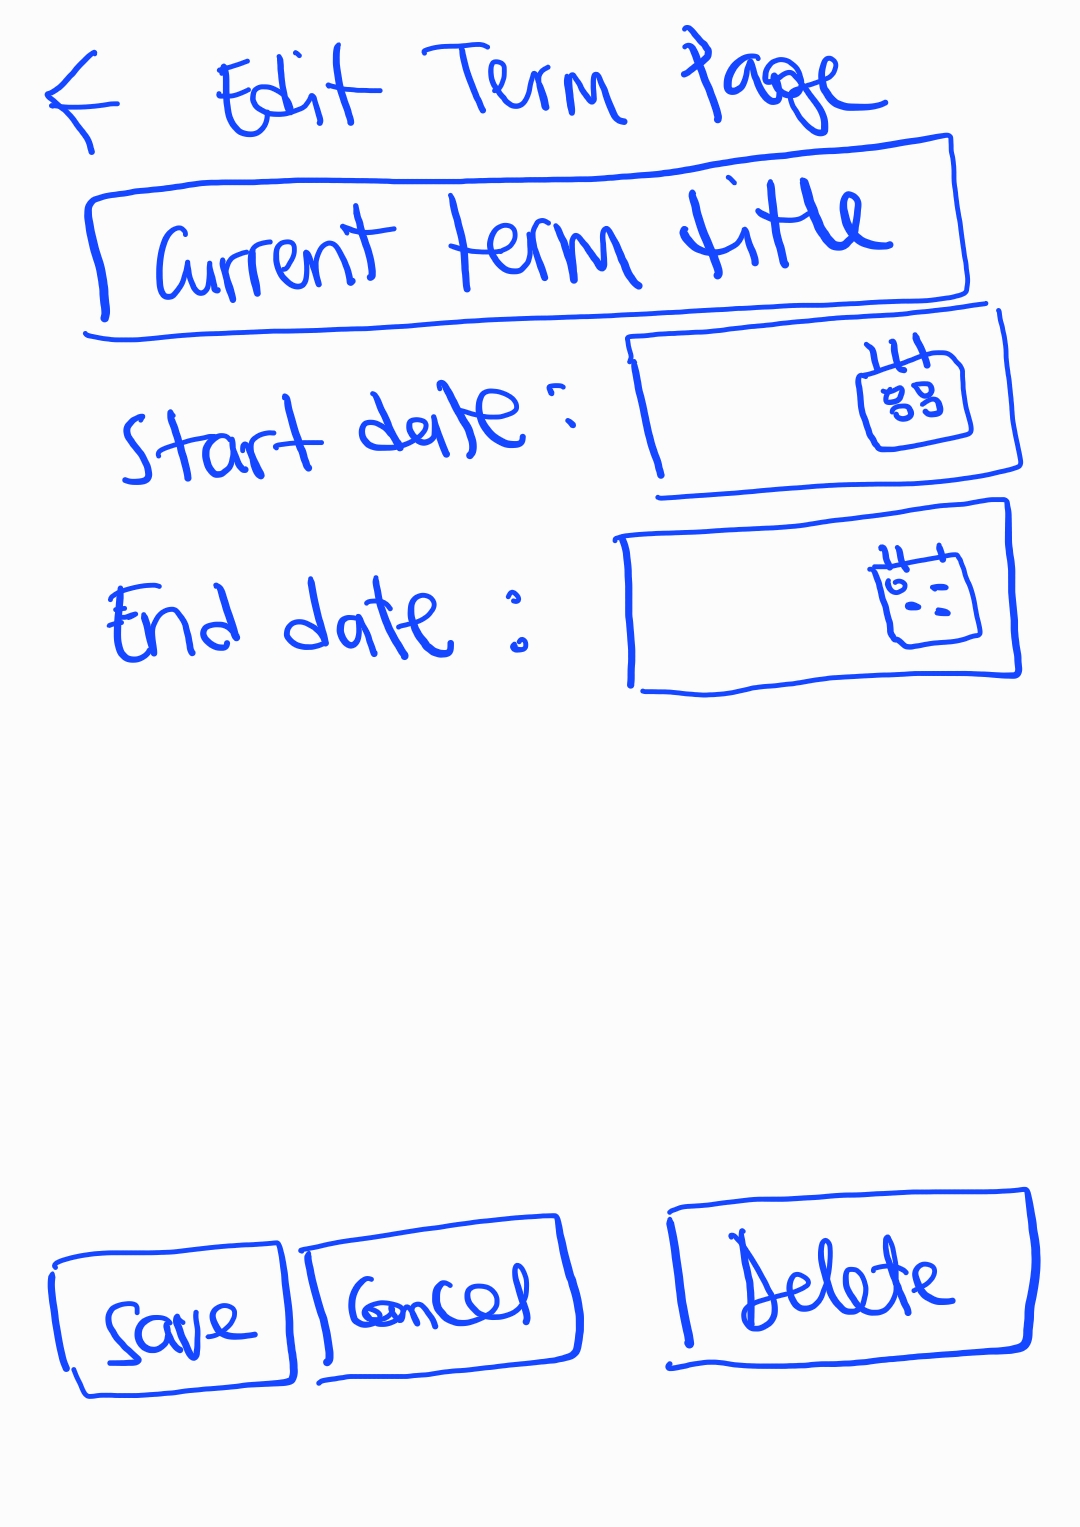 Edit Term Page
Current term title
Start date:
End date:
Save Cancel Delete